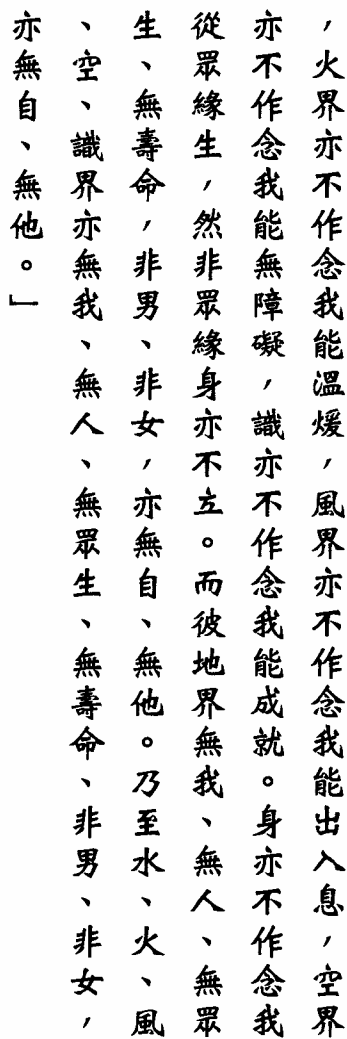 ，火界亦不作念我能溫煖，風界亦不作念我能出入息，空界
亦不作念我能無障礙，識亦不作念我能成就。身亦不作念我
從眾緣生，然非眾緣身亦不立。而彼地界無我、無人、無眾
生、無壽命，非男、非女，亦無自、無他。乃至水、火、風
、空、識界亦無我、無人、無眾生、無壽命、非男、非女，
亦無自、無他。」